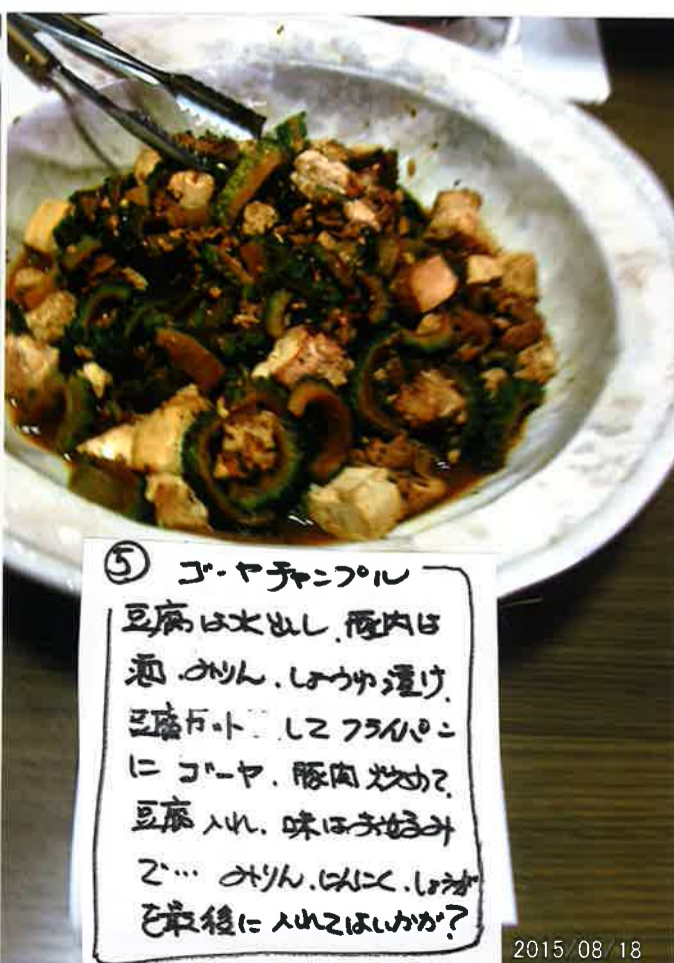 ⑤ ゴーヤチャンプル
豆腐は水出し、豚肉は
酒、みりん、しょうゆ漬け、
豆腐カット して フライパン
に ゴーヤ、豚肉 炒めて、
豆腐 入れ、味はお好み
で… みりん、にんにく、しょうが
を最後に入れてはいかが?
2015/08/18